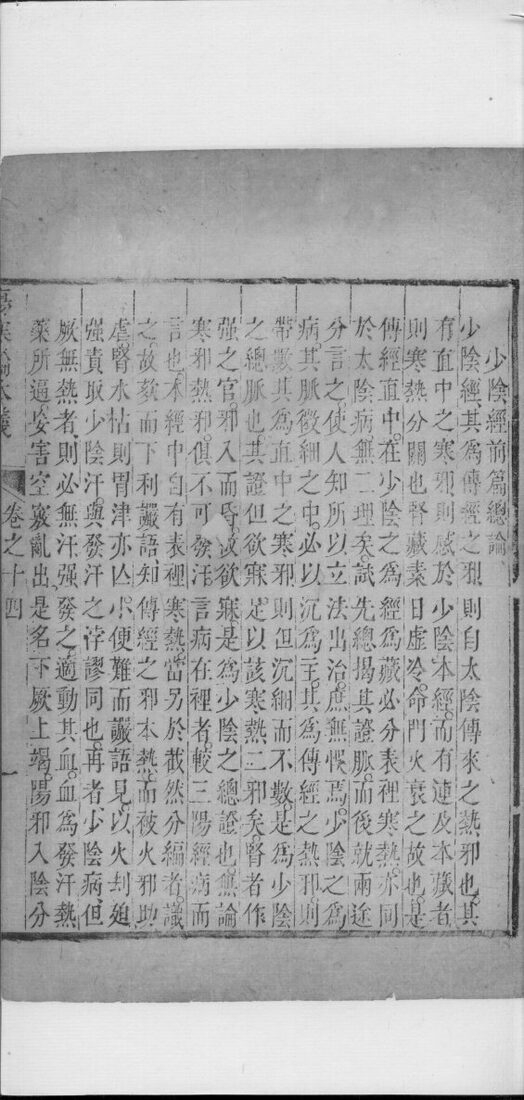 少陰經前篇總論
少陰經其爲傳經之邪則自太陰傳來之熱邪也其
有直中之寒邪則感於少陰本經而有連及本藏者
則寒熱分關也腎藏素日虛冷命門火衰之故也是
傳經直中在少陰之爲經爲藏必分表裡寒熱亦同
於太陰病無二理矣試先總揭其證脈而後就兩途
分言之使人知所以立法出治庶無悞焉少陰之爲
病其脈微細之中必以沉爲主其爲傳經之熱邪則
帶數其爲直中之寒邪則但沉細而不數是爲少陰
之總脈也其證但欲寐足以該寒熱二邪矣腎者作
强之官邪入而昏沉欲寐是爲少陰之總證也無論
寒邪熱邪俱不可發汗言病在裡者較三陽經病而
言也本經中自有表裡寒熱當另於截然分編者議
之故玆而下利讝語知傳經之邪本熱而被火邪助
虐腎水枯則胃津亦亾小便難而讝語見以火刦廹
强責取少陰汗與發汗之悖謬同也再者少陰病但
厥無熱者則必無汗强發之適動其血血爲發汗熱
藥所逼妄害空竅亂出是名下厥上竭陽邪入陰分
卷之十四
一